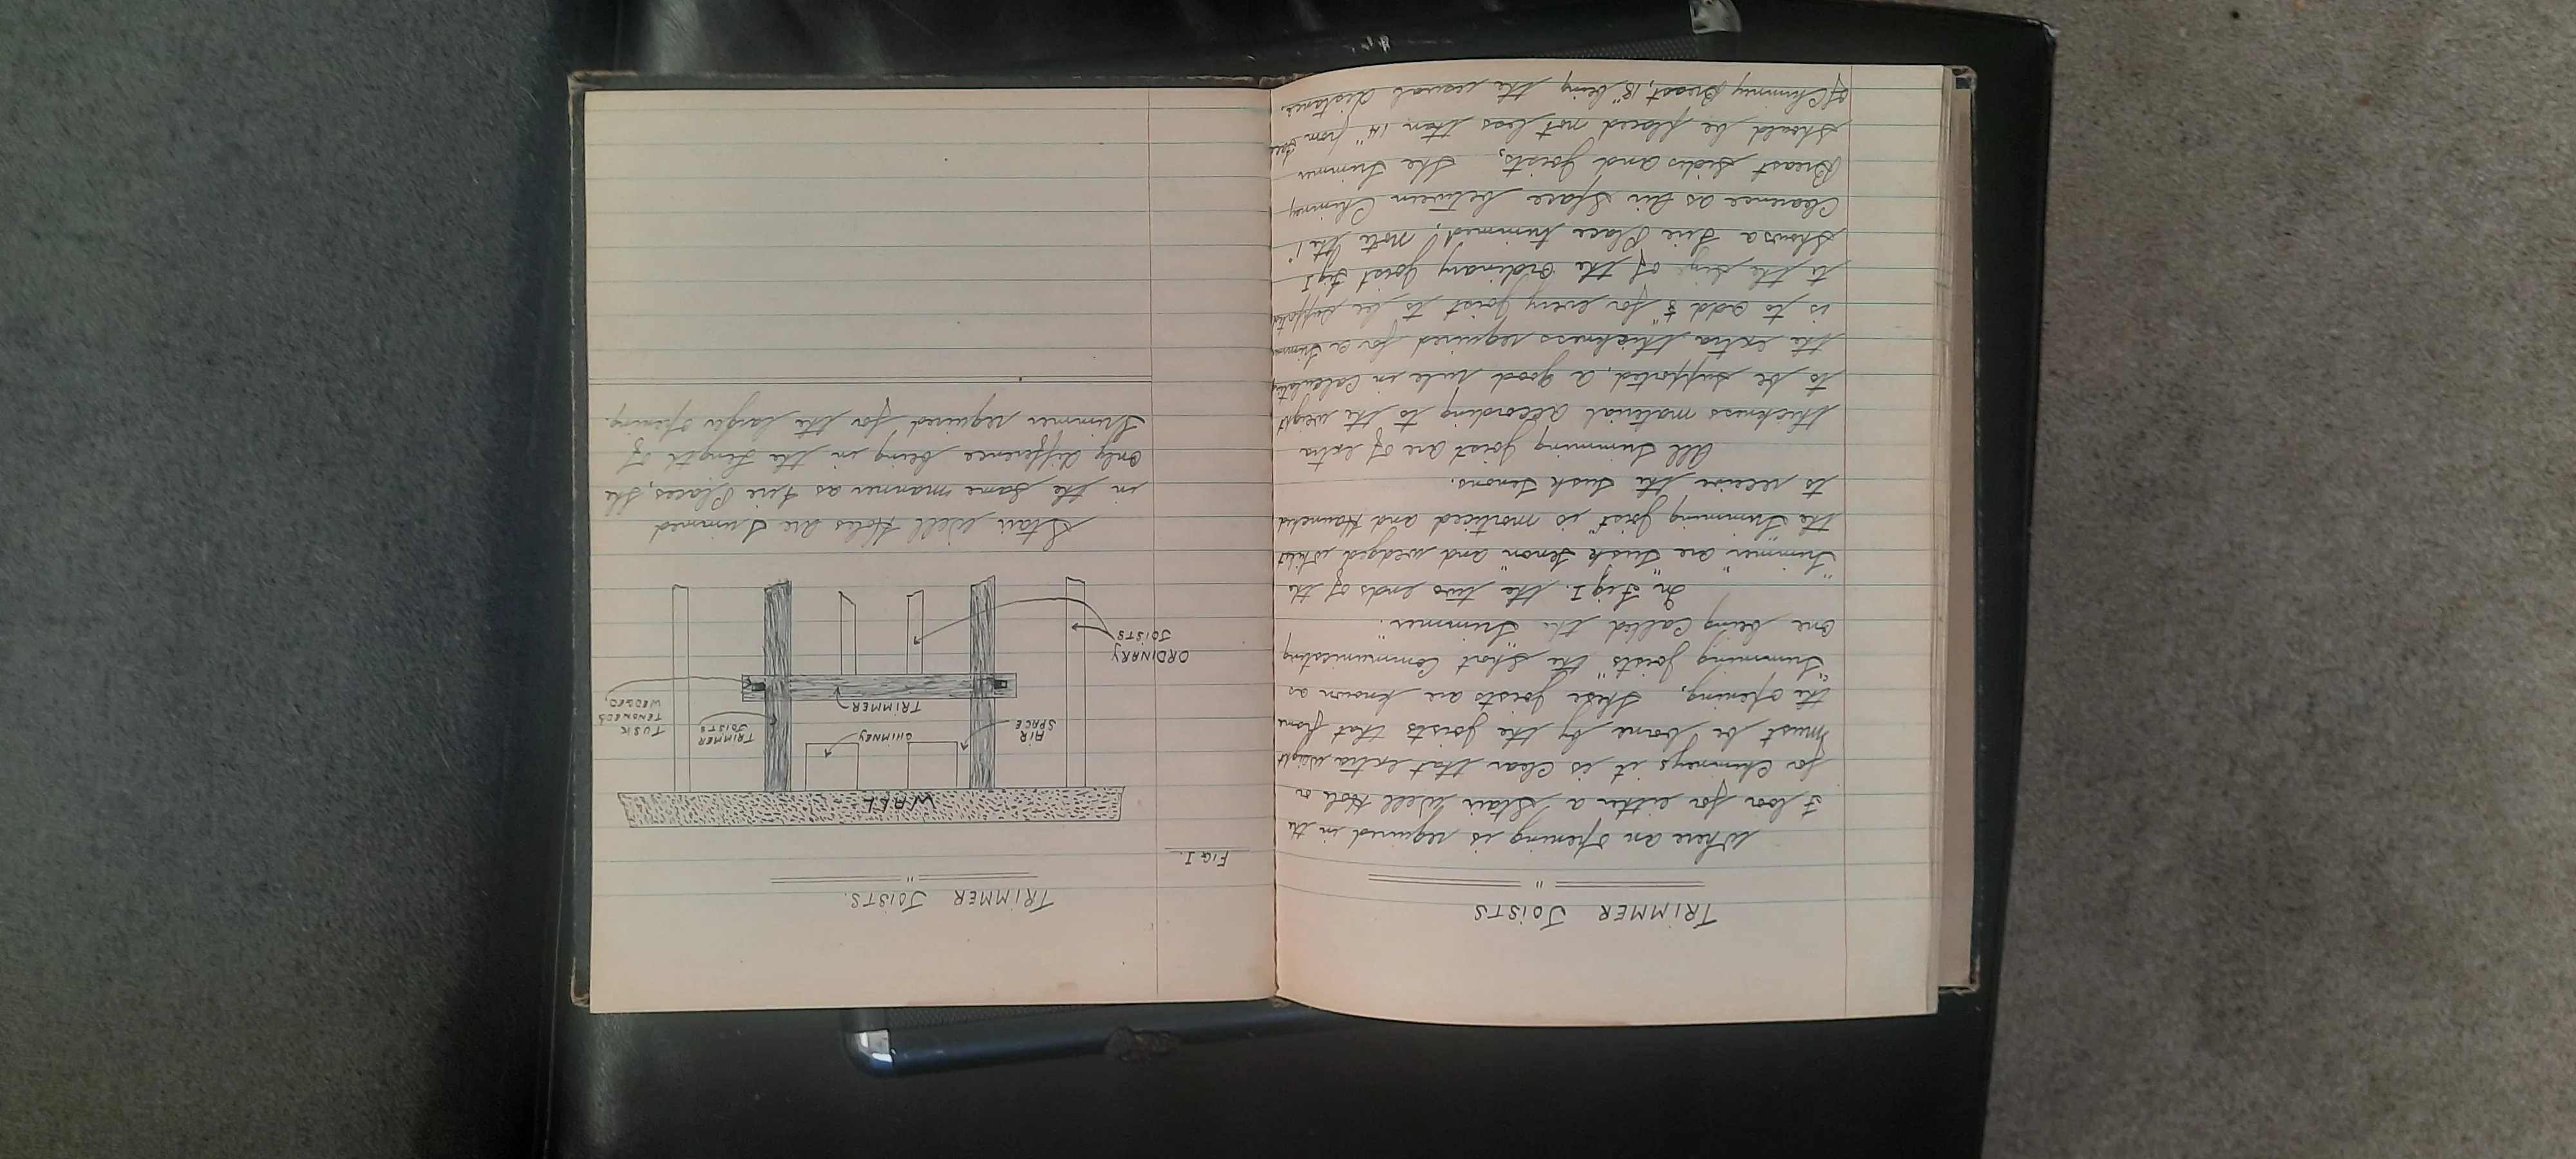 TRIMMER JOISTS
"
Where an opening is required in the
Floor for either a Stair Well Hole or
for Chimneys it is clear that extra weight
must be borne by the joists that frame
the opening, These joists are known as
"Trimming joists" the Short Communicating
one being Called the "Trimmer".
In "Fig I. the two ends of the
"Trimmer" are "Tusk Tenon" and wedged Whilst
the "Trimming joist" is morticed and Haunched
to receive the Tusk Tenons.
All Trimming joist are of extra
thickness material according to the weight
to be supported, a good rule in Calculating
the extra thickness required for a Trimmer
is to add ⅛" for every joist to be supported
to the size of the Ordinary joist Fig I
Shows a Fire Place trimmed, note the 1"
Clearence as Air Space between Chimney
Breast Sides and joists, The Trimmer
Should be placed not less than 14" from face
of Chimney Breast, 18" being the usual distance.
TRIMMER JOISTS.
"
FIG I.
WALL
AIR
SPACE
CHIMNEY
TRIMMER
JOISTS
TUSK
TENONED &
WEDGED,
TRIMMER
ORDINARY
JOISTS
Stair Well Holes are Trimmed
in the same manner as Fire Places, the
only difference being in the Length of
Trimmer required for the larger opening.